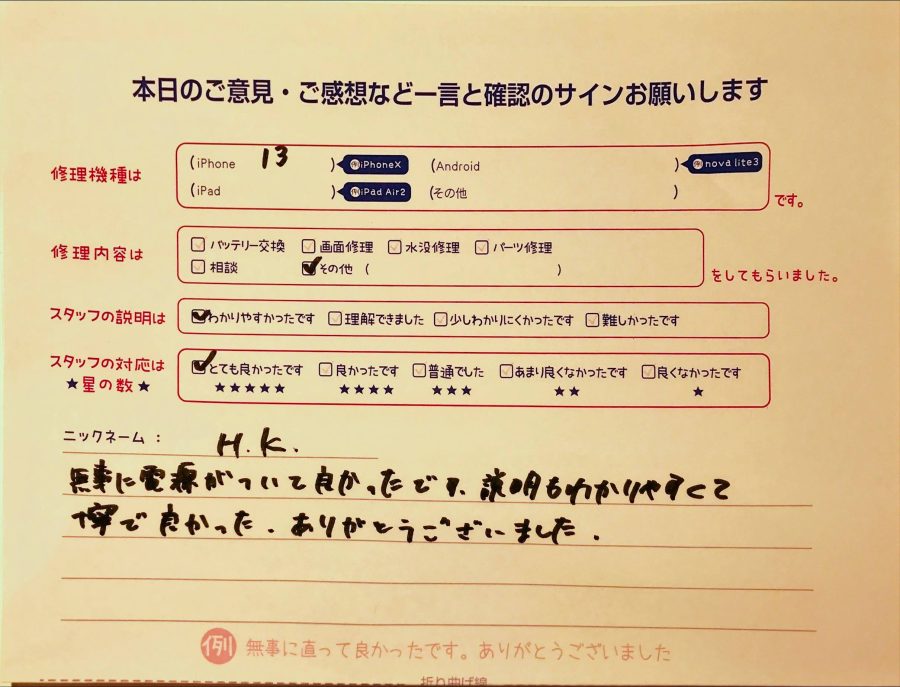 本日のご意見・ご感想など一言と確認のサインお願いします
修理機種は
(iPhone 13 ) 例iPhoneX (Android ) 例nova lite3
(iPad ) 例iPad Air2 (その他 )
です。
修理内容は
バッテリー交換 画面修理 水没修理 パーツ修理
相談 その他 ( )
をしてもらいました。
スタッフの説明は
わかりやすかったです 理解できました 少しわかりにくかったです 難しかったです
スタッフの対応は
★星の数★
とても良かったです 良かったです 普通でした あまり良くなかったです 良くなかったです
★★★★★ ★★★★ ★★★ ★★ ★
ニックネーム : H.K.
無事に電源がついて良かったです。説明もわかりやすくて
丁寧で良かった。ありがとうございました。
例 無事に直って良かったです。ありがとうございました
折り曲げ線